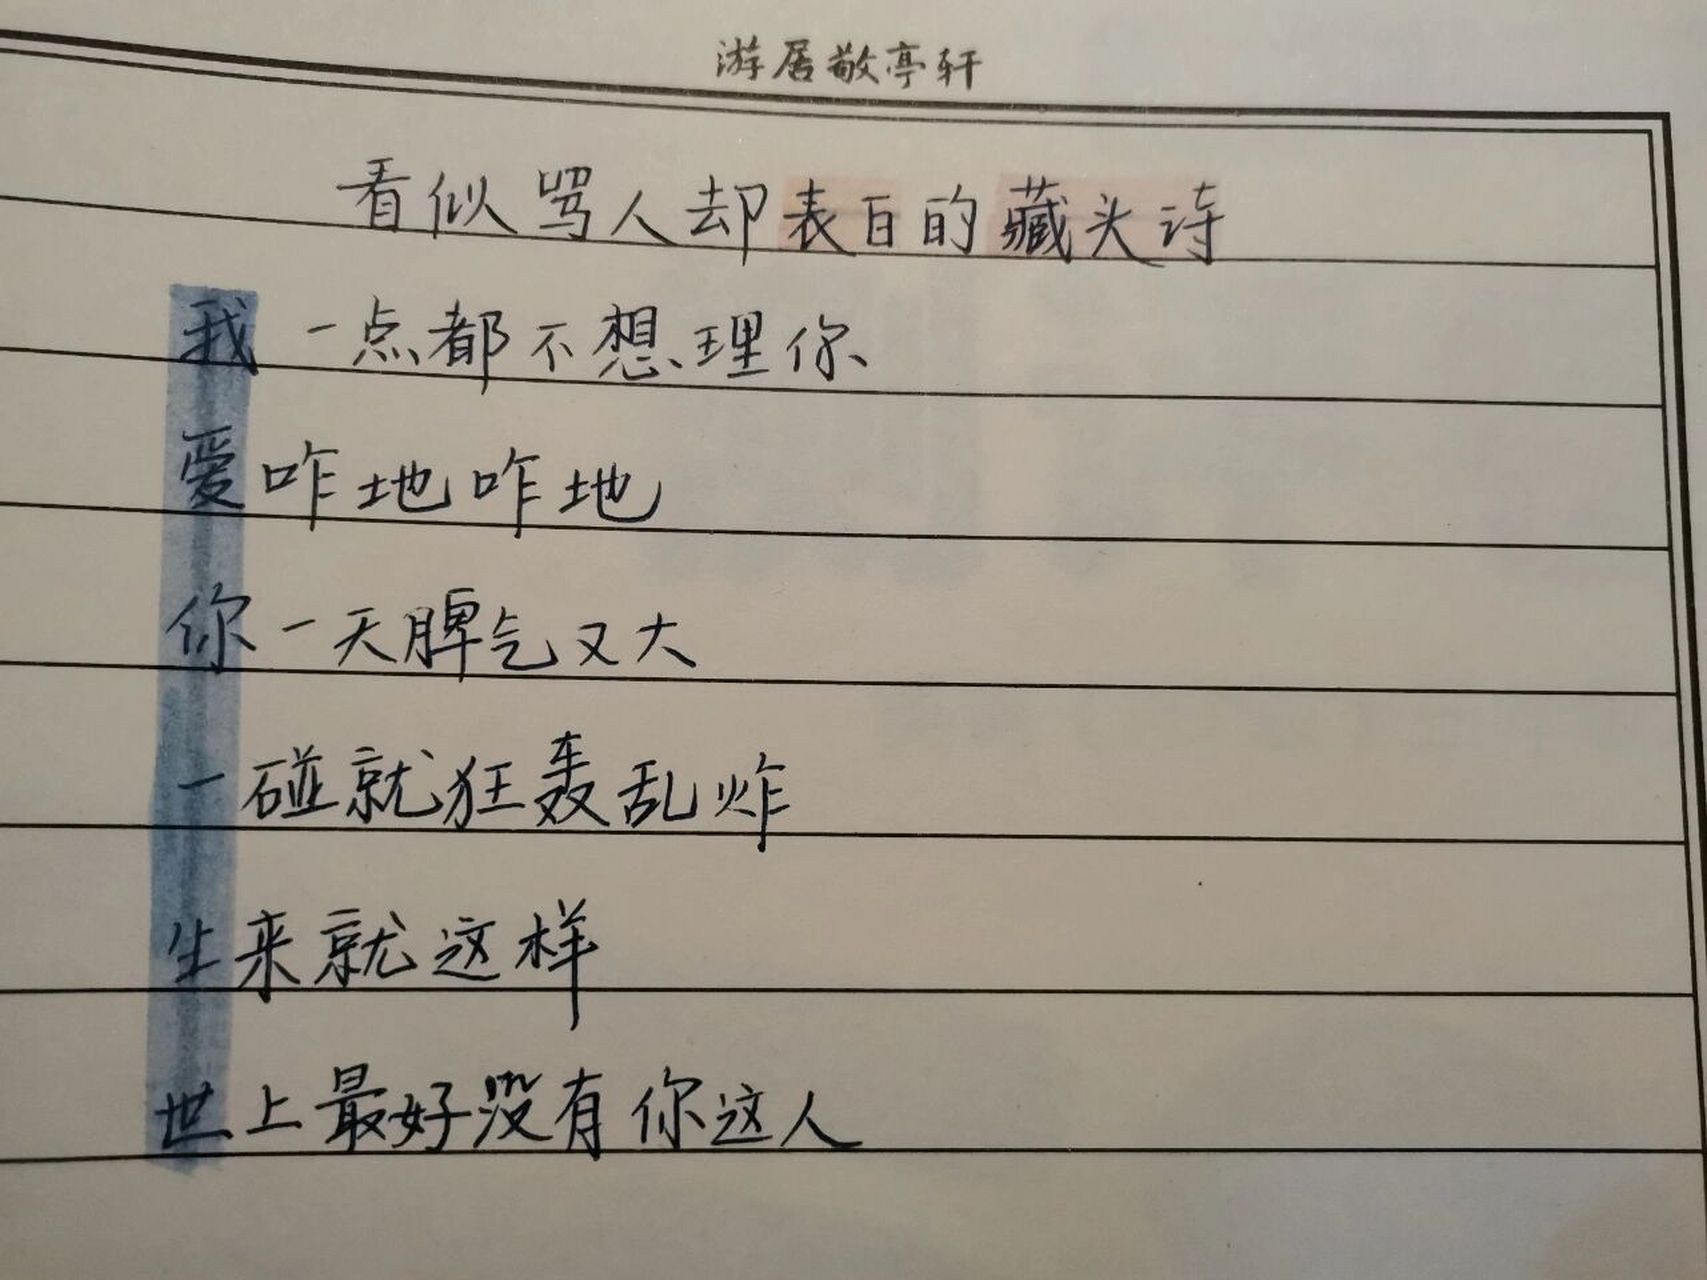 游居敬亭轩
看似骂人却表白的藏头诗
我一点都不想理你
爱咋地咋地
你一天脾气又大
一碰就狂轰乱炸
生来就这样
世上最好没有你这人